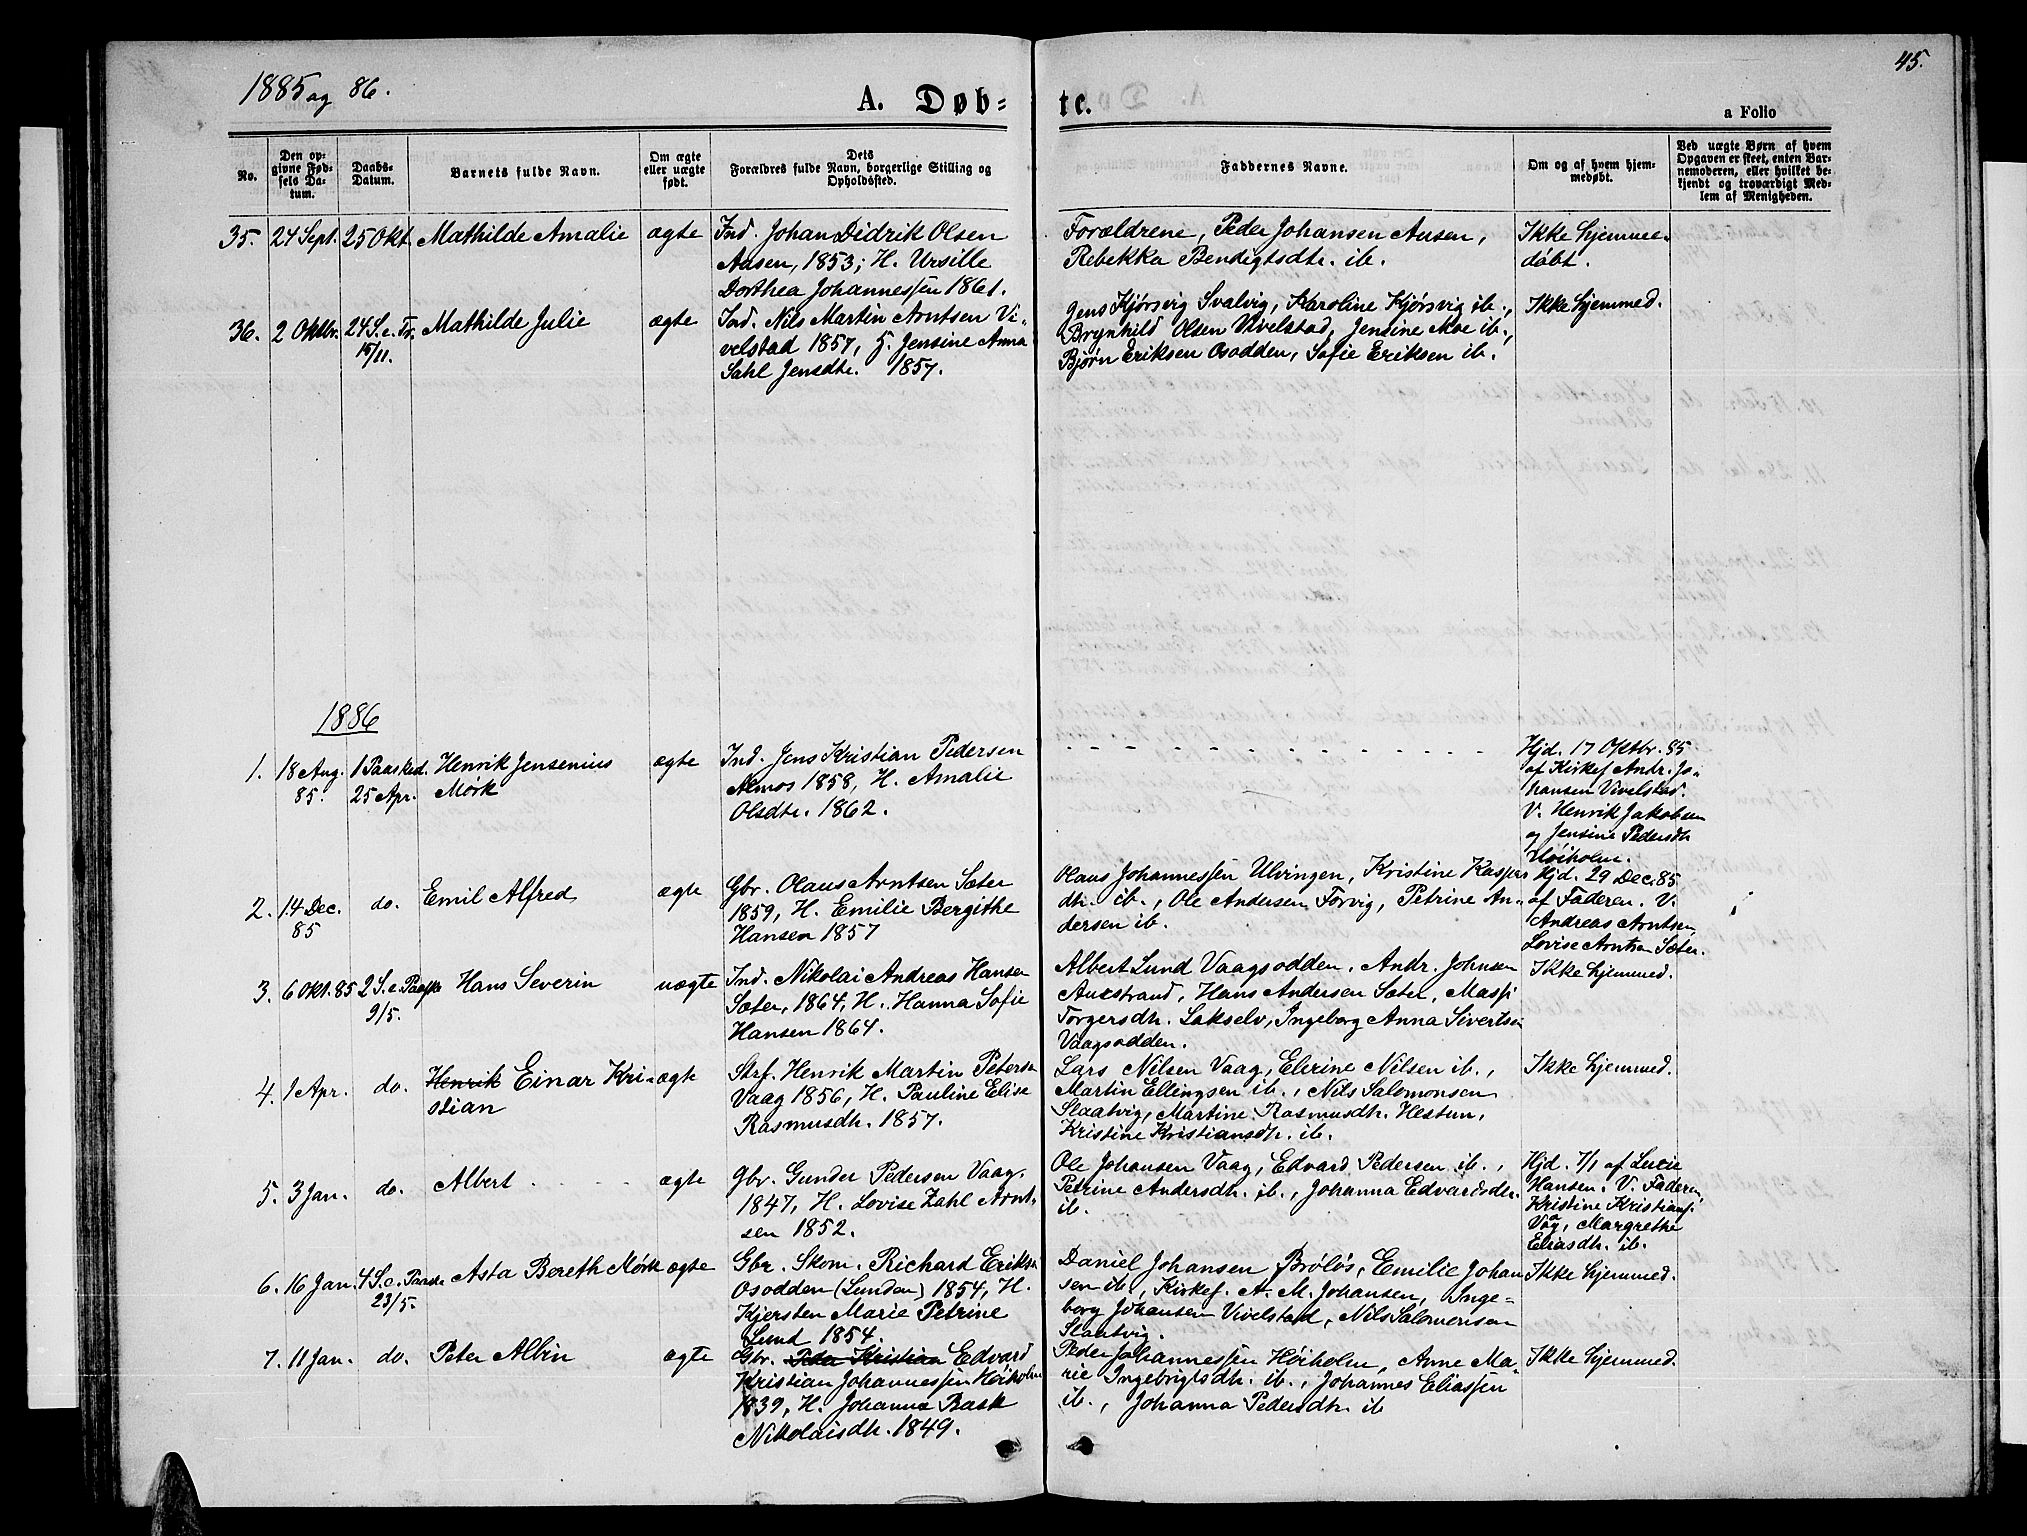 1885 og 86.
A. Døb-
te.
a Folio
45.
No.
Den op-
givne Fød-
sels Da-
tum.
Daabs-
Datum.
Barnets fulde Navn.
Om ægte
eller uægte
født.
Dets
Forældres fulde Navn, borgerlige Stilling og
Opholdssted.
Faddernes Navne.
Om og af hvem hjem-
medøbt.
Ved uægte Børn af hvem
Opgaven er skeet, enten Bar-
nemoderen, eller hvilket be-
kjendt og troværdigt Med-
lem af Menigheden.
35. 24 Sept. 25 Okt. Mathilde Amalie ægte
Ind. Johan Didrik Olsen
Ausen, 1853; H. Ursille
Dorthea Johannessen 1861.
Forældrene, Peder Johansen Ausen,
Rebekka Bendigtsdtr. ib.
Ikke hjemme-
døbt.
36. 2 Oktbr. 24 S. e. Tr. Mathilde Julie ægte
15/11.
Ind. Nils Martin Arntsen Vi-
velstad 1857, H. Jensine Anna
Sahl Jensdtr. 1857.
Jens Kjørsvig Svalvig, Karoline Kjørsvig ib.,
Brynhild Olsen Vivelstad, Jensine Moe ib.,
Bjørn Eriksen Osodden, Sofie Eriksen ib.
Ikke hjemmed.
1886
1. 18 Aug. 1 Paasked. Henrik Jensenius ægte
85. 25 Apr. Mørk
Ind. Jens Kristian Pedersen
Almos 1858, H. Amalie
Olsdtr. 1862.
Hjd. 17 Oktbr. 85
af Kirkef. Andr. Jo-
hansen Vivelstad.
V. Henrik Jakobsen
og Jensine Pedersdtr.
Høiholm.
2. 14 Dec. do. Emil Alfred ægte
85
Gbr. Olaus Arntsen Sæter
1859, H. Emilie Bergithe
Hansen 1857
Olaus Johannessen Ulvingen, Kristine Kaspers
dtr. ib., Ole Andersen Forvig, Petrine An-
dersen ib.
Hjd. 29 Dec. 85
af Faderen. V.
Andreas Arntsen,
Lovise Arntsen Sæter.
3. 6 Okt. 85 2 S. e. Paaske Hans Severin uægte
9/5.
Ind. Nikolai Andreas Hansen
Sæter, 1864, H. Hanna Sofie
Hansen 1864.
Albert Lund Vaagsodden, Andr. Johnsen
Aurstrand, Hans Andersen Sæter, Massi
Torgersdtr. Lakselv, Ingeborg Anna Sivertsen
Vaagsodden.
Ikke hjemmed.
4. 1 Apr. do. Henrik Einar Kri- ægte
stian
Strf. Henrik Martin Petersen
Vaag 1856, H. Pauline Elise
Rasmusdtr. 1857.
Lars Nilsen Vaag, Elrine Nilsen ib.,
Martin Ellingsen ib., Nils Salomonsen
Slaatvig, Martine Rasmusdtr. Hestun,
Kristine Kristiansdtr. ib.
Ikke hjemmed.
5. 3 Jan. do. Albert ægte
Gbr. Gunder Pedersen Vaag.
1847, H. Lovise Zahl Arnt-
sen 1852.
Ole Johansen Vaag, Edvard Pedersen ib.,
Petrine Andersdtr. ib., Johanna Edvardsdtr.
ib.
Hjd. 7/1 af Lucie
Hansen. V. Faderen,
Kristine Kristians.
Vaag, Margrethe
Eliasdtr. ib.
6. 16 Jan. 4 S. e. Paaske Asta Bereth Mørk ægte
23/5.
Gbr. Skom. Richard Eriks.
Osodden (Lunden) 1854, H.
Kjersten Marie Petrine
Lund 1854.
Daniel Johansen Brøløs, Emilie Johan
sen ib., Kirkef. A. M. Johansen, Inge-
borg Johansen Vivelstad, Nils Salomonsen
Slaatvig.
Ikke hjemmed.
7. 11 Jan. do. Peter Albin ægte
Gbr. Peder Kristian Edvard
Kristian Johannessen Høiholm
1839, H. Johanna Bask
Nikolaisdtr. 1849.
Peder Johannessen Høiholm, Anne Ma-
rie Ingebrigtsdtr. ib., Johannes Eliassen
ib., Johanna Pedersdtr. ib
Ikke hjemmed.